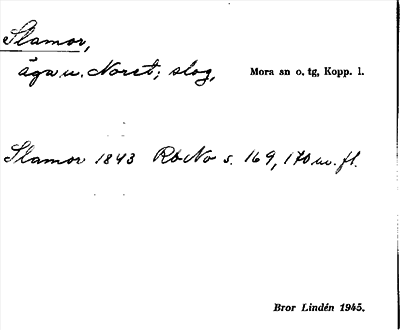 Slamor,
äga u. Noret; slog, Mora sn o. tg, Kopp. l.
Slamor 1843 RbNo s. 169, 170 m. fl.
Bror Lindén 1945.